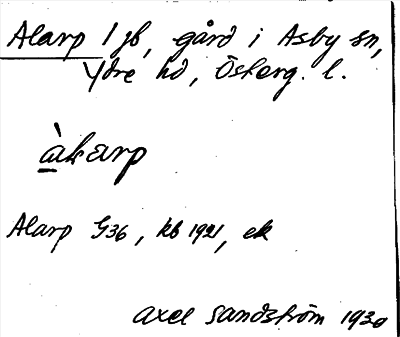 Alarp 1 gb, gård i Asby sn,
Ydre hd, Österg. l.
àlarp
Alarp G36, kb 1921, ek
Axel Sandström 1930